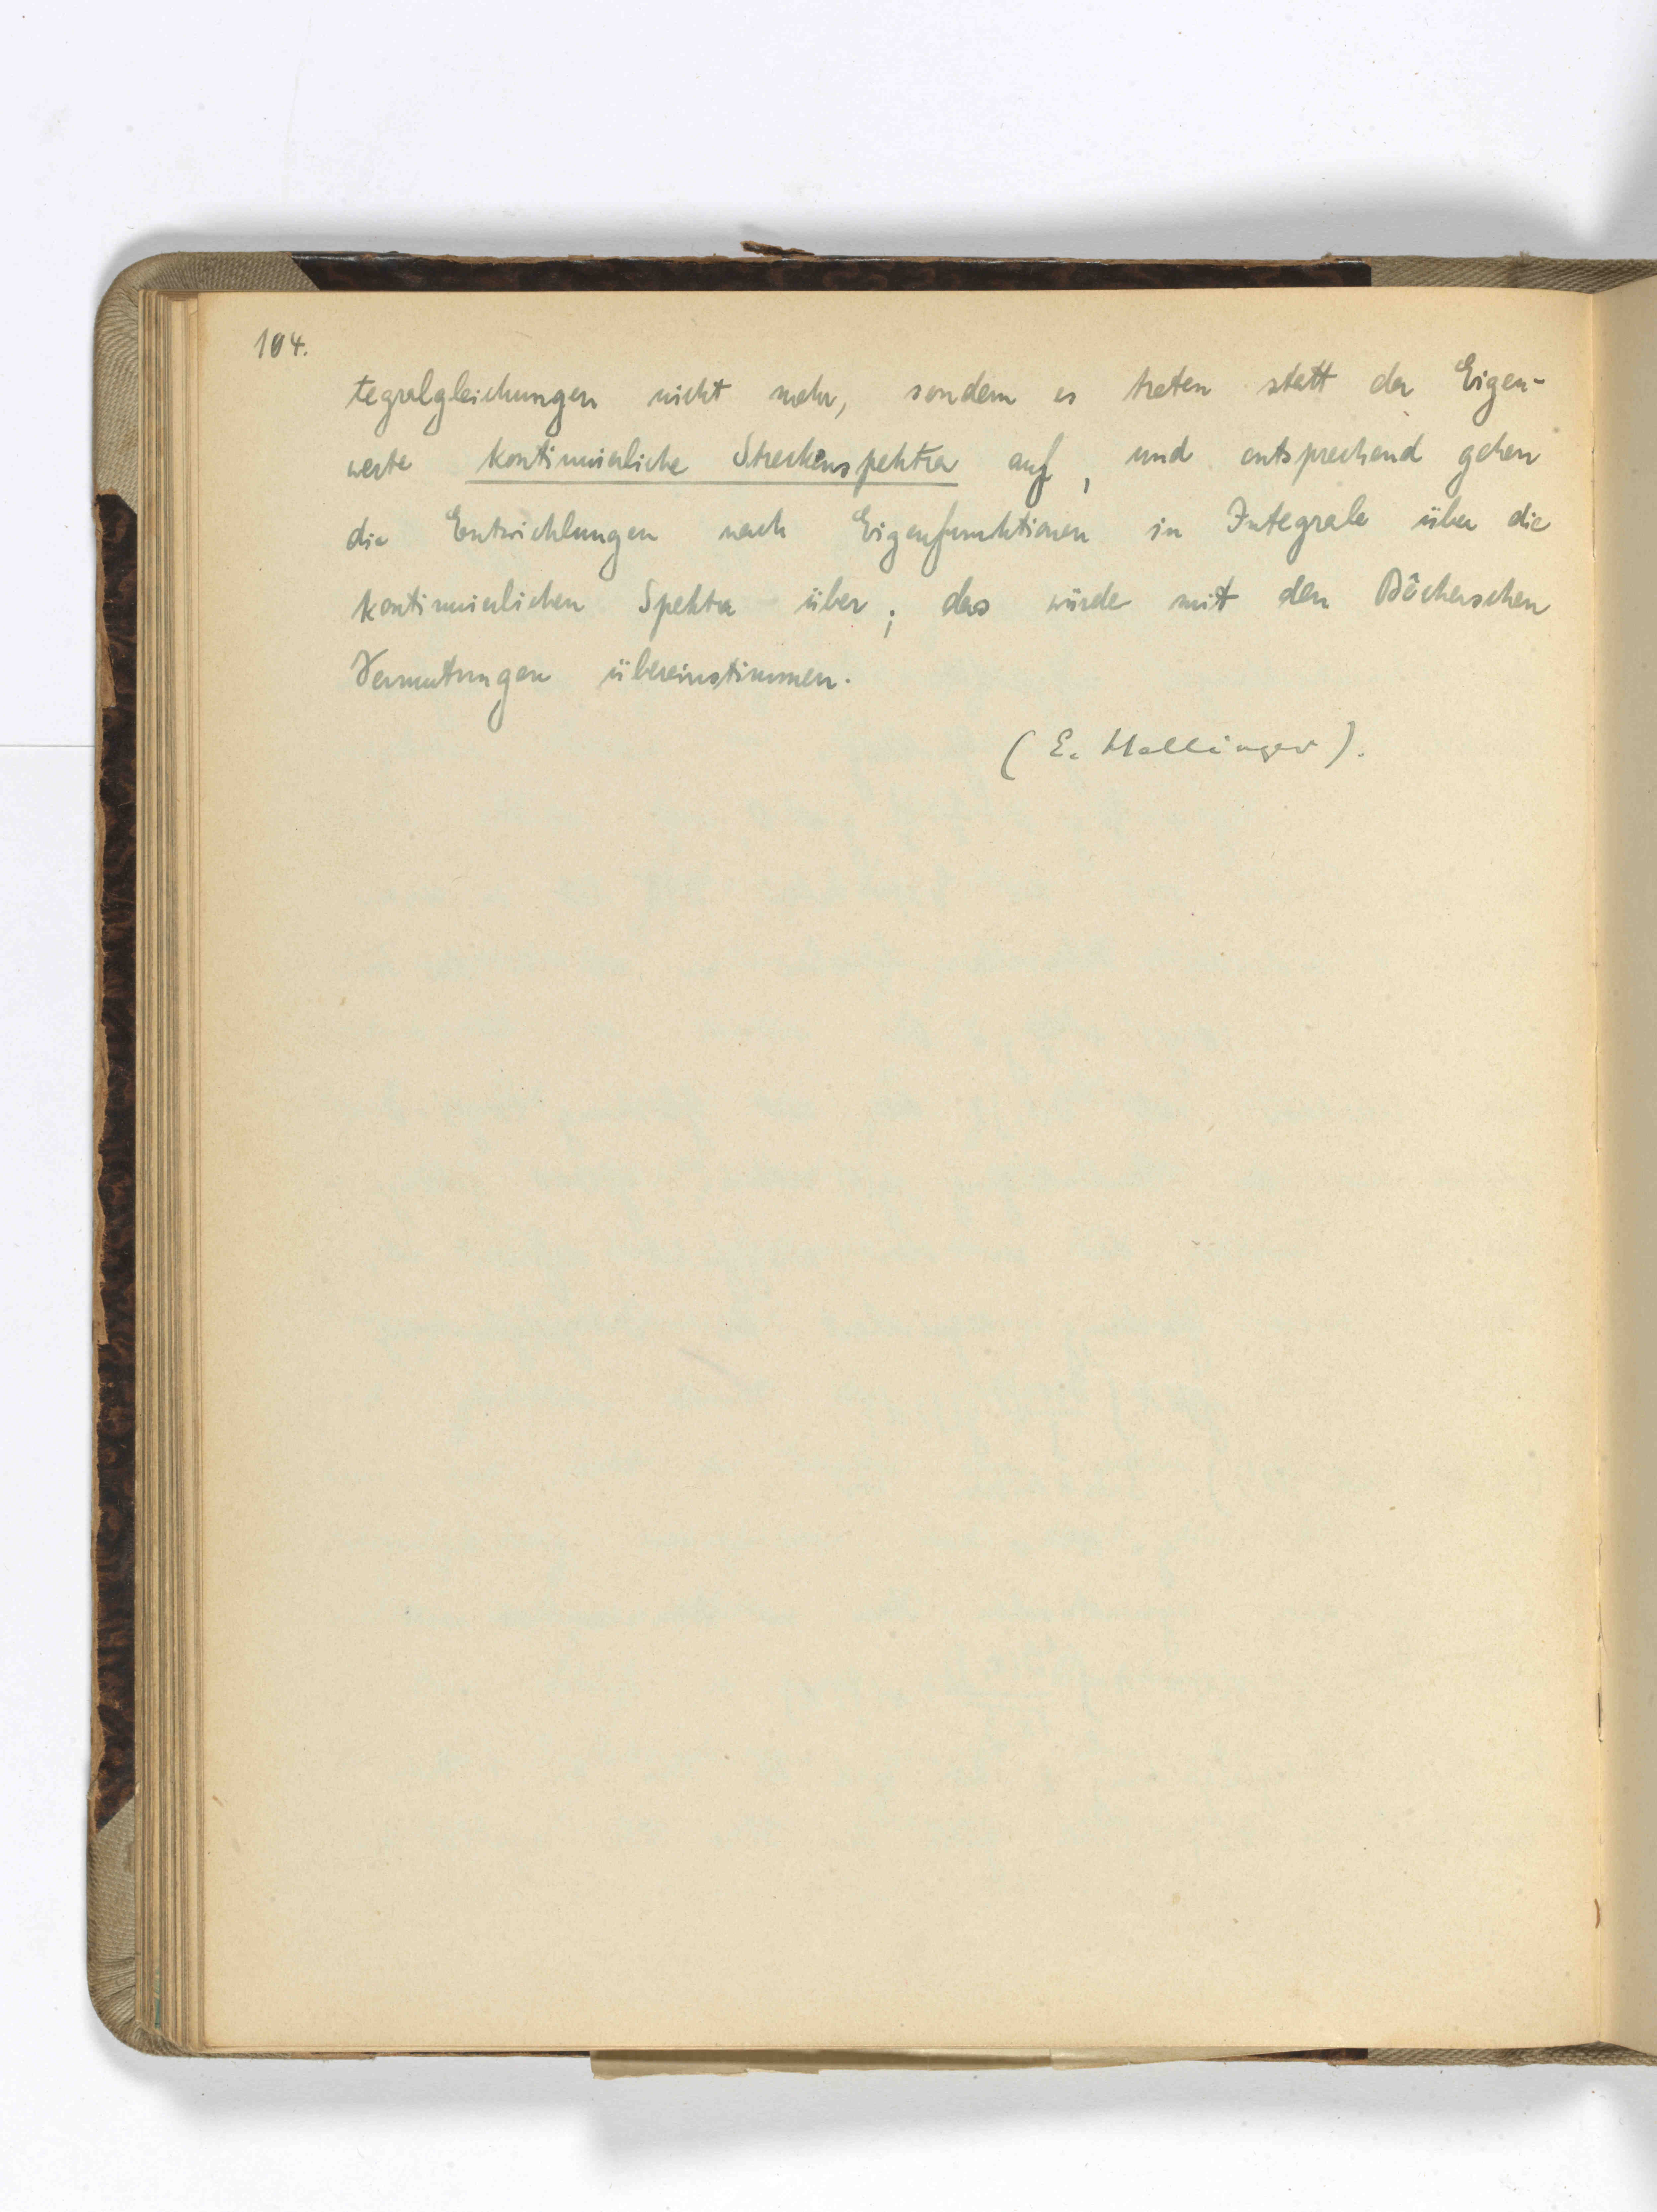 104.
tegralgleichungen nicht mehr, sondern es treten statt der Eigen-
werte kontinuierliche Streckenspektra auf, und entsprechend gehen
die Entwicklungen nach Eigenfunktionen in Integrale über die
kontinuierlichen Spektra über; das würde mit den Bôcherschen
Vermutungen übereinstimmen.
(E. Hellinger).